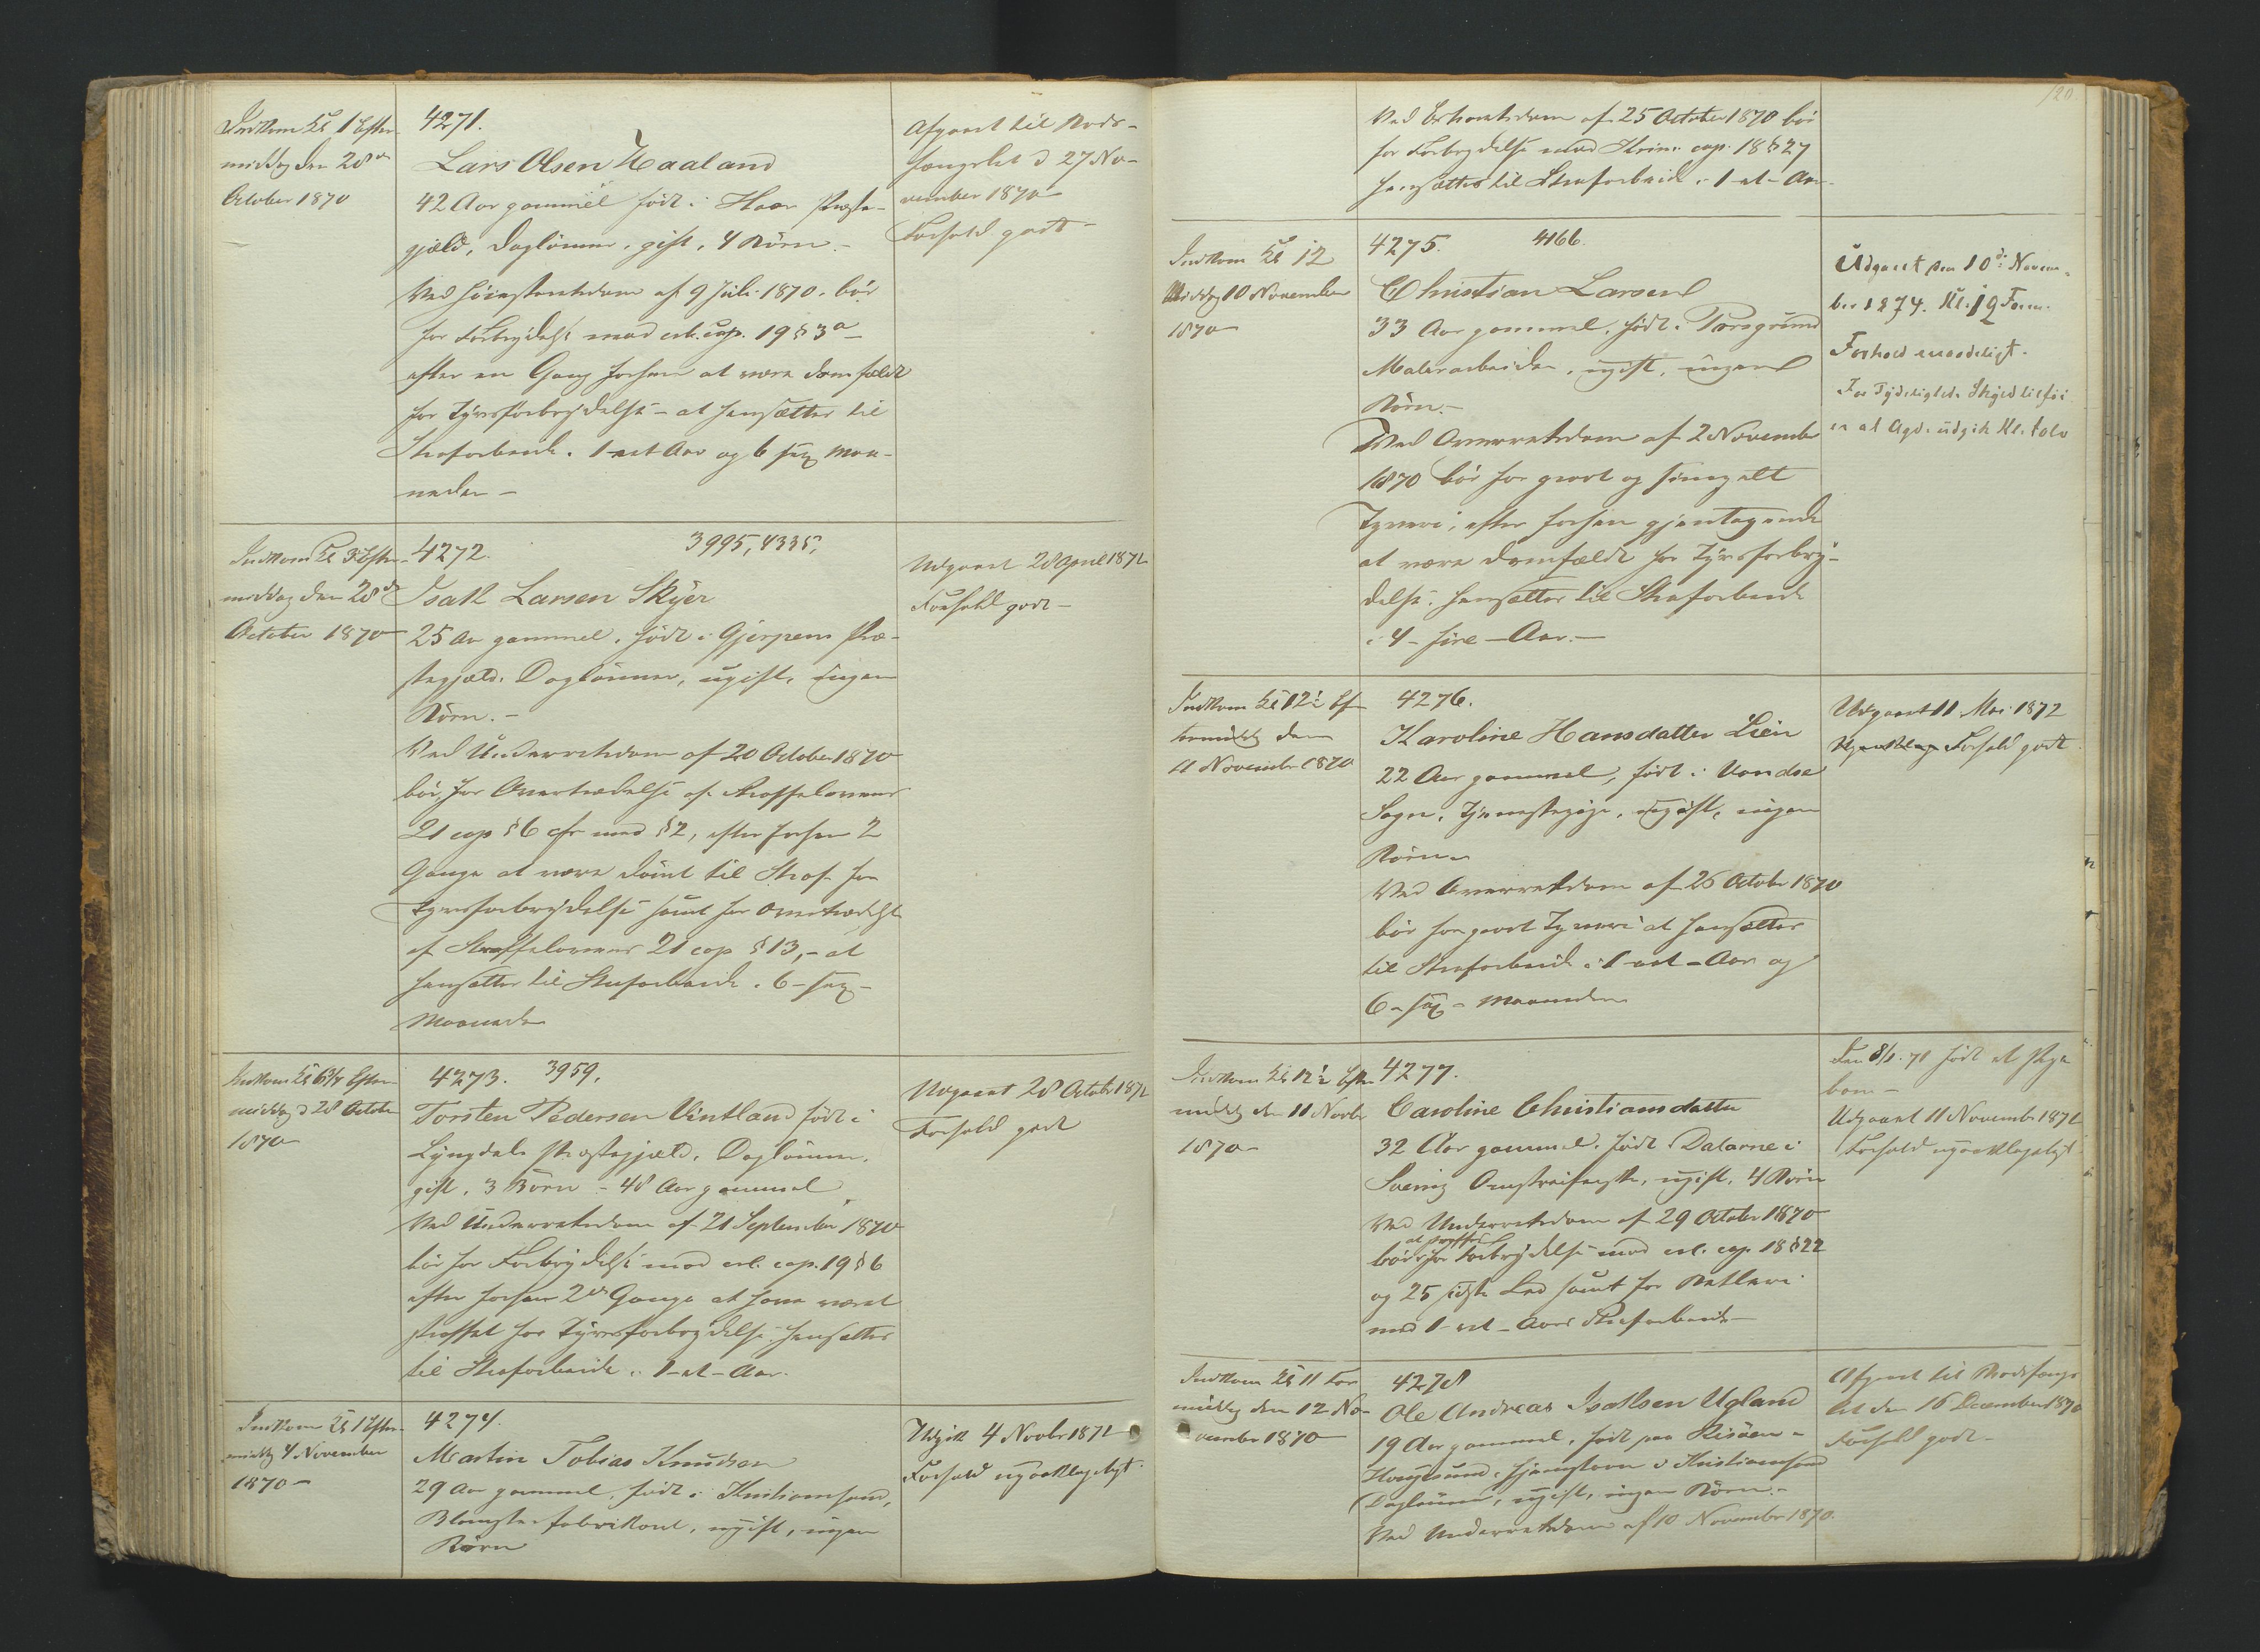 Indkom Kl 1 Efter-
middag den 28de
October 1870
4271.
Lars Olsen Haaland
42 Aar gammel født i Haae Præste-
gjæld, Daglønner, gift, 4 Børn.-
Ved Høiesteretsdom af 9 Juli 1870. bør
for Forbrydelse mod crl. cap. 19 § 3 a
efter en Gang forhen at være domfældt
for Tyvsforbrydelse - at hensættes til
Strafarbeide i 1 - et Aar og 6 sex Maa-
neder -
Afgaaet til Bods-
fængslet d 27 No-
vember 1870
Forhold godt -
Indkom Kl 3 Efter-
middag den 28de
October 1870
4272. 3995, 4335,
Isak Larsen Skyer
25 Aar gammel, født i Gjerpens Præ-
stegjæld, Daglønner, ugift, ingen
Børn.-
Ved Underretsdom af 20 October 1870
bør for Overtrædelse af Straffelovens
21 cap § 6 cfr med § 2, efter forhen 2
Gange at være dømt til Straf for
Tyvsforbrydelse samt for Overtrædelse
af Straffelovens 21 cap § 13, - at
hensættes til Strafarbeide i 6 - sex -
Maaneder
Udgaaet 28 April 1871
Forhold godt -
Indkom Kl 6 3/4 Efter-
middag d 28 October
1870
4273. 3959.
Torsten Pedersen Vintland født i
Lyngdals Præstegjæld, Daglønner,
gift, 3 Børn - 48 Aar gammel
Ved Underretsdom af 21 September 1870
bør for Forbrydelse mod crl. cap. 19 § 6
efter forhen 2de Gange at have været
straffet for Tyvsforbrydelse hensættes
til Strafarbeide i 1 - et - Aar.
Udgaaet 28 October 1871
Forhold godt
Indkom Kl 1 Efter-
middg 4 November
1870 -
4274.
Martin Tobias Knudsen
29 Aar gammel, født i Kristiansand,
Blomsterfabrikant, ugift, ingen
Børn
Udgik 4 Novbr 1871
Forhold upaaklageligt
120.
Ved Extraretsdom af 25 October 1870 bør
for Forbrydelse mod Krim: cap. 18 § 27
hensættes til Strafarbeide i 1 - et - Aar
Indkom Kl 12
Middag 10 November
1870
4275. 4166.
Christian Larsen
33 Aar gammel, født i Porsgrund
Malerarbeider, ugift, ingen
Børn.-
Ved Overretsdom af 2 November
1870 bør for grovt og simpelt
Tyveri, efter forhen gjentagende
at være domfældt for Tyvsforbry-
delse, hensættes til Strafarbeide
i 4 - fire - Aar. -
Udgaaet den 10de Novem-
ber 1874. Kl. 12 Form.
Forhold maadeligt.
For Tydeligheds Skyld tilføi
es at Agd. udgik Kl. tolv
Indkom Kl 12 1/2 Ef-
termiddg den
11 November 1870
4276.
Karoline Hansdatter Lien
22 Aar gammel, født i Vandse
Sogn, Tjenestepige, ugift, ingen
Børn
Ved Overretsdom af 26 October 1870
bør for grovt Tyveri at hensættes
til Strafarbeide i 1 - et - Aar og
6 - sex - Maaneder
Udgaaet 11 Mai 1872
Forhold godt
Indkom Kl 12 1/2 Efter-
middg den 11 Novbr
1870 -
4277.
Caroline Christiansdatter
32 Aar gammel, født Dalarne i
Sverig Omstreiferske, ugift, 4 Børn
Ved Underretsdom af 29 October 1870
at straffes
bør for Forbrydelse mod crl. cap. 18 § 22
og 25 sidste Led samt for Betleri
med 1 - et - Aars Strafarbeide -
Den 8/1. 71 født et Pige
barn -
Udgaaet 11 November 1871
Forhold upaaklageligt
Indkom Kl 11 For
middg den 12 No-
vember 1870
4278
Ole Andreas Isaksen Ugland
19 Aar gammel, født paa Risøen -
Haugesund, hjemstavn i Kristiansand
Daglønner, ugift, ingen Børn.-
Ved Underretsdom af 10 November 1870.
Afgaaet til Bodsfængs
let den 16 December 1870
Forhold godt -